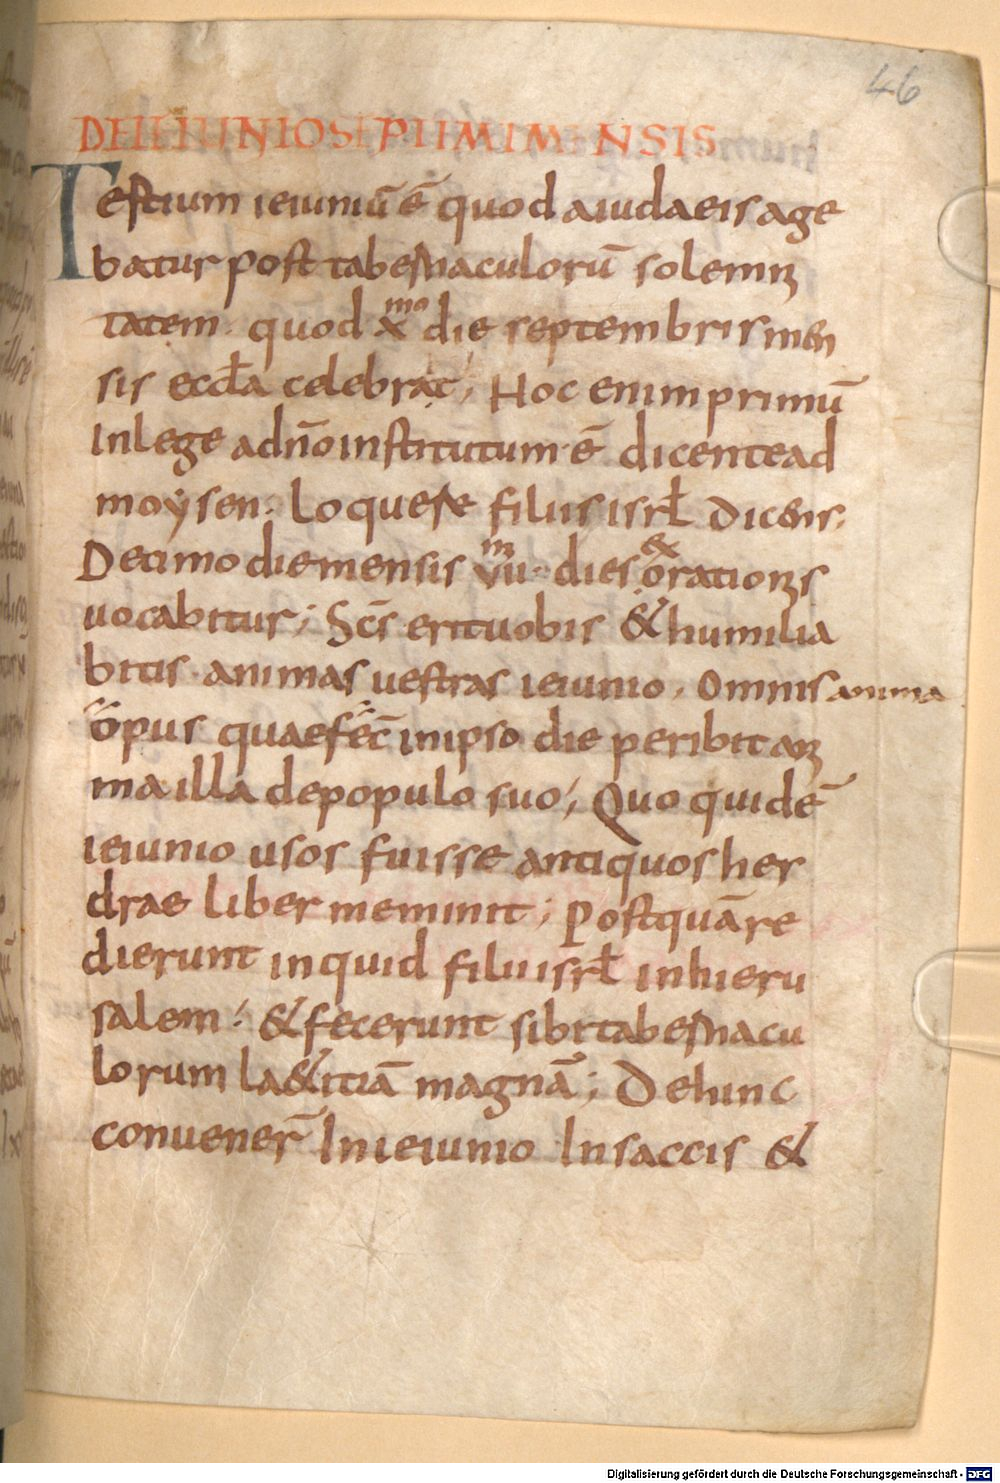 46
DE IEIUNIO SEPTIMI MENSIS
Testium ieiuniū ē quod aiudaeis age
batur post tabernaculorū solemni
tatem. quod x mo die septembris men
sis eccła celebrat; Hoc enim primū
In lege ad no institutum ē dicente ad
moẏsen. Loquere filiis isrł dicens.
Decimo die mensis vii m dies & orationis
uocabitur; Scs erit uobis & humilia
bitis animas uestras ieiunio. Omnis anima
opus quae fec in ipso die peribit ani
ma illa de populo suo; Quo quidē
ieiunio usos fuisse antiquos hes
drae liber meminit; Postquā re
dierunt inquid filii isrł in hieru
salem. & fecerunt sibi tabernacu
lorum laetitiā magnā; Dehinc
conuener In ieiunio In saccis &
Digitalisierung gefördert durch die Deutsche Forschungsgemeinschaft - DFG